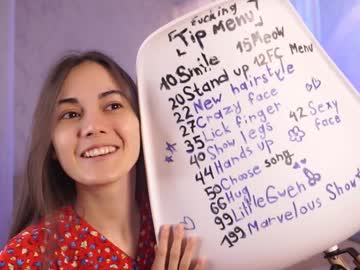 fucking
[Tip Menu]
10 Smile 15 Meow
20 Stand up 12 FC Menu
22 New hairstyle
27 Crazy face
35 Lick finger
40 Show legs 42 Sexy face
44 Hands up
50 Choose song
66 Hug
99 Little Gwen
199 Marvelous Show